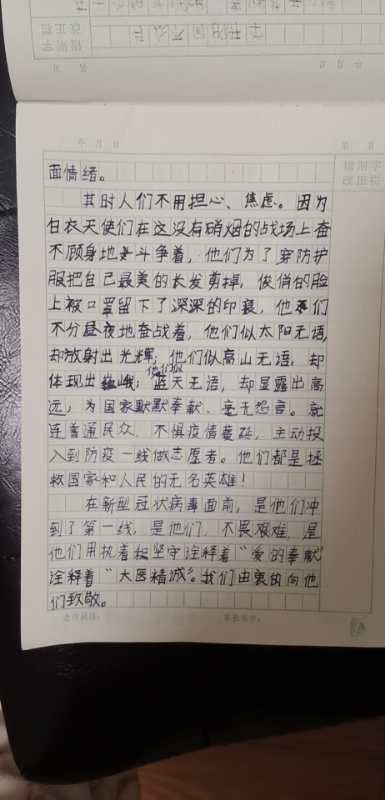 年 月 日
面情绪。
其时人们不用担心、焦虑。因为
白衣天使们在这没有硝烟的战场上奋
不顾身地斗争着，他们为了穿防护
服把自己最美的长发剪掉，俊俏的脸
上被口罩留下了深深的印衰，他们
不分昼夜地奋战着，他们似太阳无语，
却放射出光辉；他们似高山无语，却
体现出巍峨；他们似蓝天无语，却显露出高
远；为国家默默奉献、毫无怨言。就
连普通民众，不惧疫情蔓延，主动投
入到防疫一线做志愿者。他们都是拯
救国家和人民的无名英雄！
在新型冠状病毒面前，是他们冲
到了第一线，是他们，不畏艰难，是
他们用执着和坚守诠释着“爱的奉献”
诠释着“大医精诚”。我们由衷的向他
们致敬。